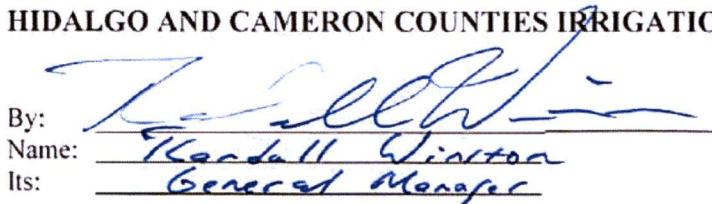 HIDALGO AND CAMERON COUNTIES IRRIGATIO
By: Randall Winston
Name: Randall Winston
Its: General Manager